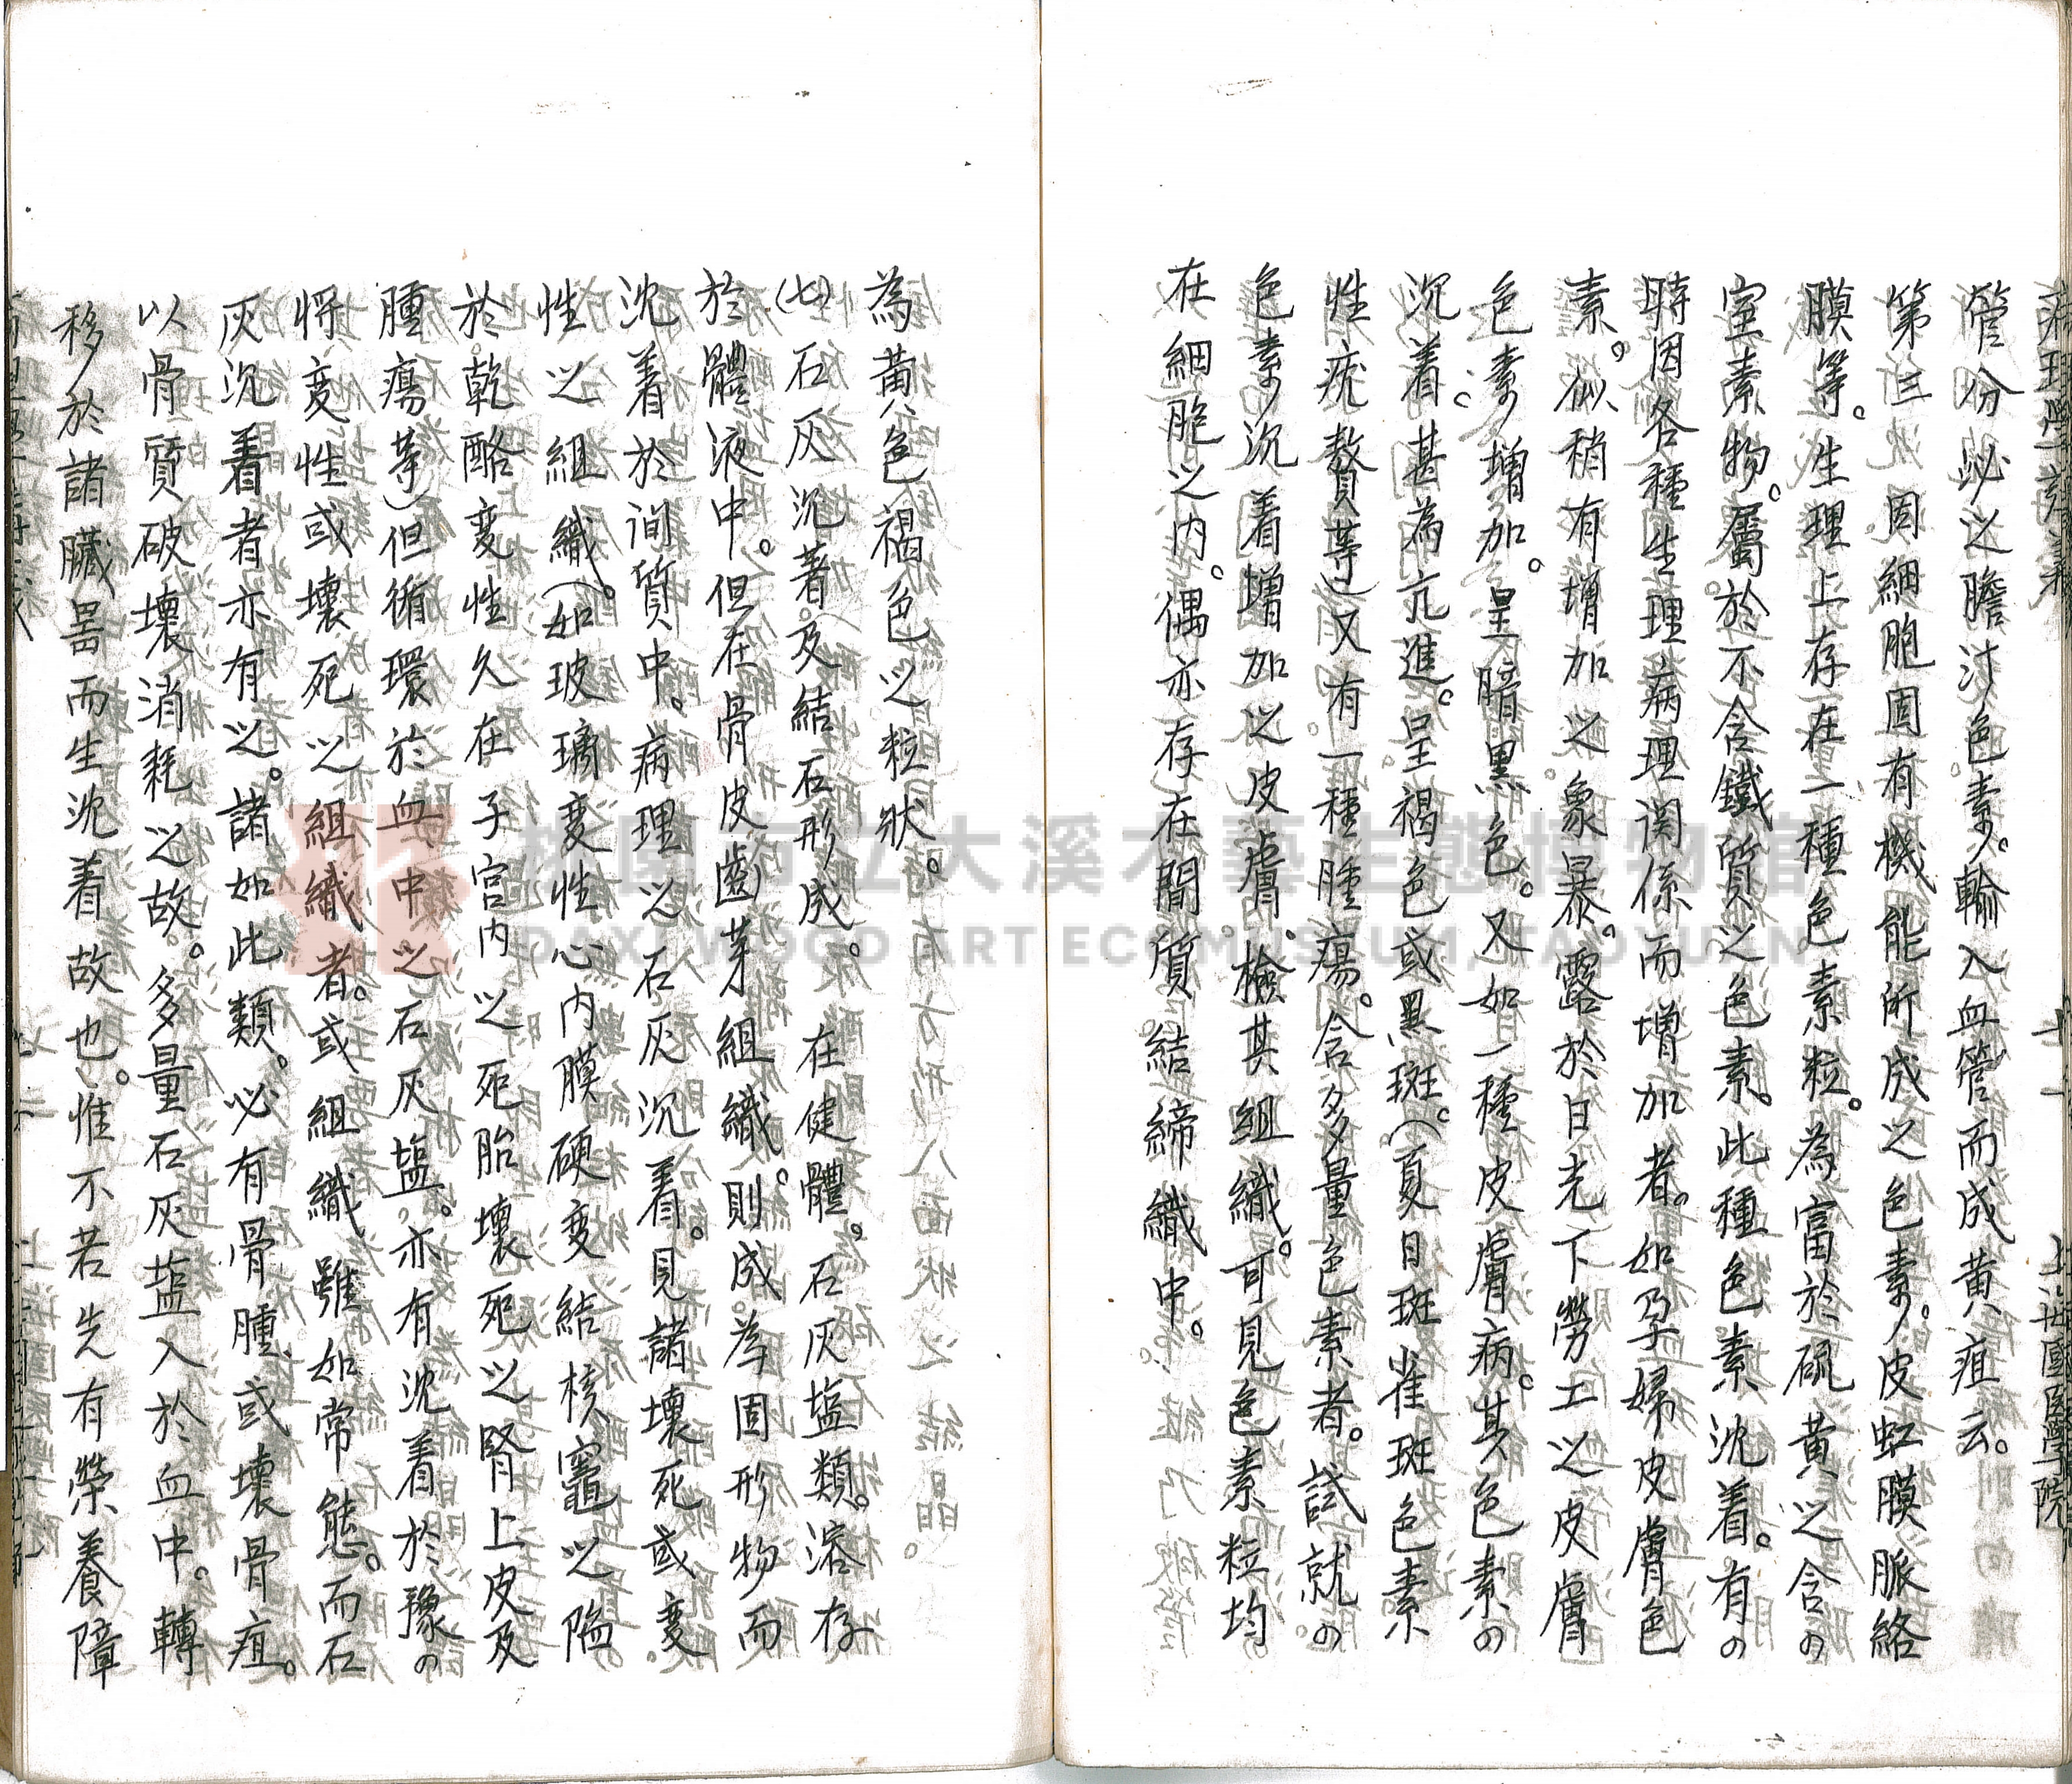 病理學講義 七一 上海國医學院
管分泌之膽汁色素。輸入血管而成黄疸云。
第三 固細胞固有機能所成之色素。皮虹膜脈絡
膜等。生理上存在一種色素粒。為富於硫黄之含の
窒素物。屬於不含鐵質之色素。此種色素沈着。有の
時因各種生理病理関係而增加者。如孕婦皮膚色
素。似稍有增加之象。暴露於日光下勞工之皮膚
色素增加。呈暗黒色。又如一種皮膚病。其色素の
沉着。甚為亢進。呈褐色或黒斑。(夏日斑雀斑色素
性疣贅等)又有一種腫瘍。含多量色素者。試就の
色素沉着增加之皮膚。檢其組織。可見色素粒均
在細胞之内。偶亦存在間質結締織中。
為黄色褐色之粒狀。
(七)石灰沉著。及結石形成。 在健體。石灰塩類。溶存
於體液中。但在骨皮齒芽組織。則成為固形物而
沈着於间質中。病理之石灰沉着。見諸壞死或变
性之組織。(如玻璃变性心内膜硬变結核竈之陷
於乾酪变性久在子宮内之死胎壞死之腎上皮及
腫瘍等)但循環於血中之石灰塩。亦有沈着於豫の
将变性或壞死之組織者。或組織雖如常態。而石
灰沉着者亦有之。諸如此類。必有骨腫或壞骨疽。
以骨質破壞消耗之故。多量石灰塩入於血中。轉
移於諸臟噐而生沈着故也。惟不若先有榮養障
DAXI WOOD ART ECOMUSEUM, TAOYUAN
桃園市立大溪木藝生態博物館